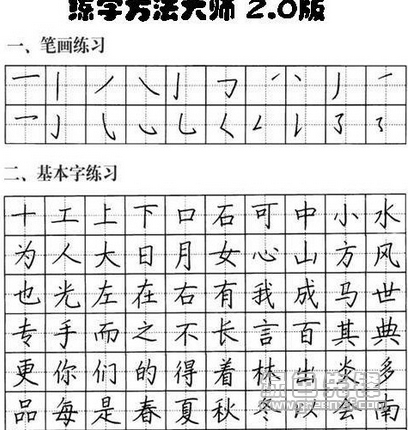 练字方法大师 2.0版
一、笔画练习
二、基本字练习
十工上下口石可中小水
为人大日月女心山方风
也光左在右有我成马世
专手而之不长言百其典
更你们的得着林出炎多
品每是春夏秋冬以会南